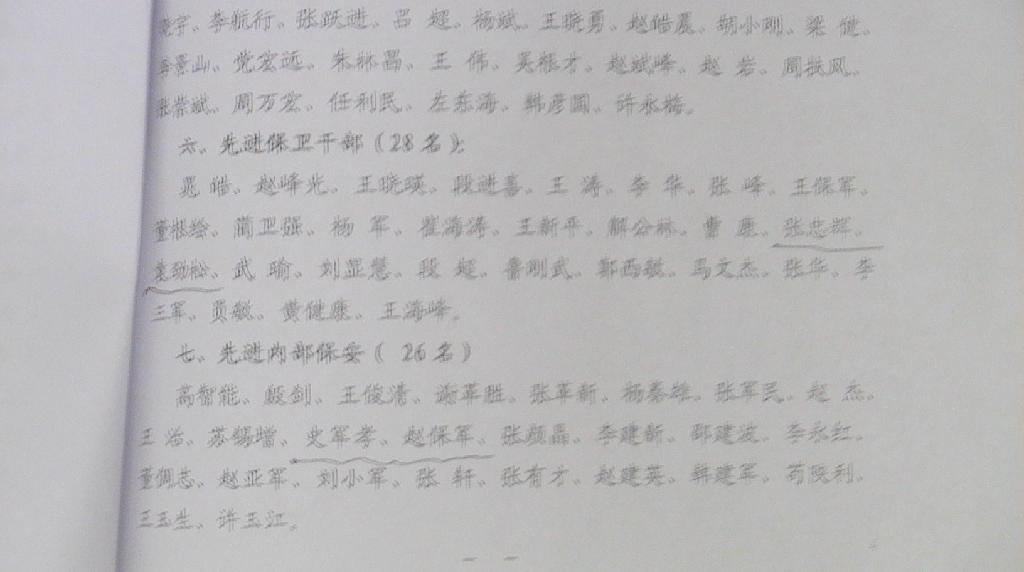 李航行、张跃进、吕 超、杨斌、王晓勇、赵皓晨、胡小刚、梁 健、
李景山、党宏远、朱林昌、王 伟、吴根才、赵斌峰、赵 岩、周扶风、
张崇斌、周万宏、任利民、左东海、韩彦圆、许永梅。
六、先进保卫干部（28名）：
晁 皓、赵峰光、王晓瑛、段进喜、王 涛、李 华、张 峰、王保军、
董根绘、蔺卫强、杨 军、崔海涛、王新平、解公林、曹 愿、张忠辉、
袁劲松、武 瑜、刘显慧、段 超、鲁刚武、郭西敏、马文杰、张华、李
三军、员敏、黄健康、王海峰。
七、先进内部保安（ 26名）
高智能、殷剑、王俊清、谢革胜、张革新、杨秦雄、张军民、赵 杰、
王 治、苏锡增、史军孝、赵保军、张颜晶、李建新、邵建波、李永红、
赵亚军、刘小军、张 轩、张有才、赵建英、韩建军、苟陕利、
王玉生、许玉江。